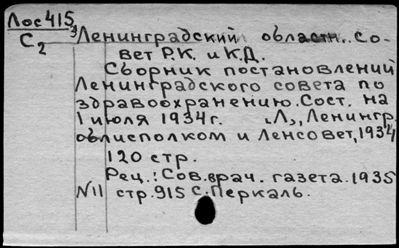 Лос415
С2
Ленинградский областн. Со-
вет Р.К. и К.Д.
Сборник постановлений
Ленинградского совета по
здравоохранению. Сост. на
1 июля 1934г. „Л„, Ленингр.
облисполком и Ленсовет, 1934
120 стр.
Рец.: Сов. врач. газета. 1935
N11 стр. 915 С. Перкаль.